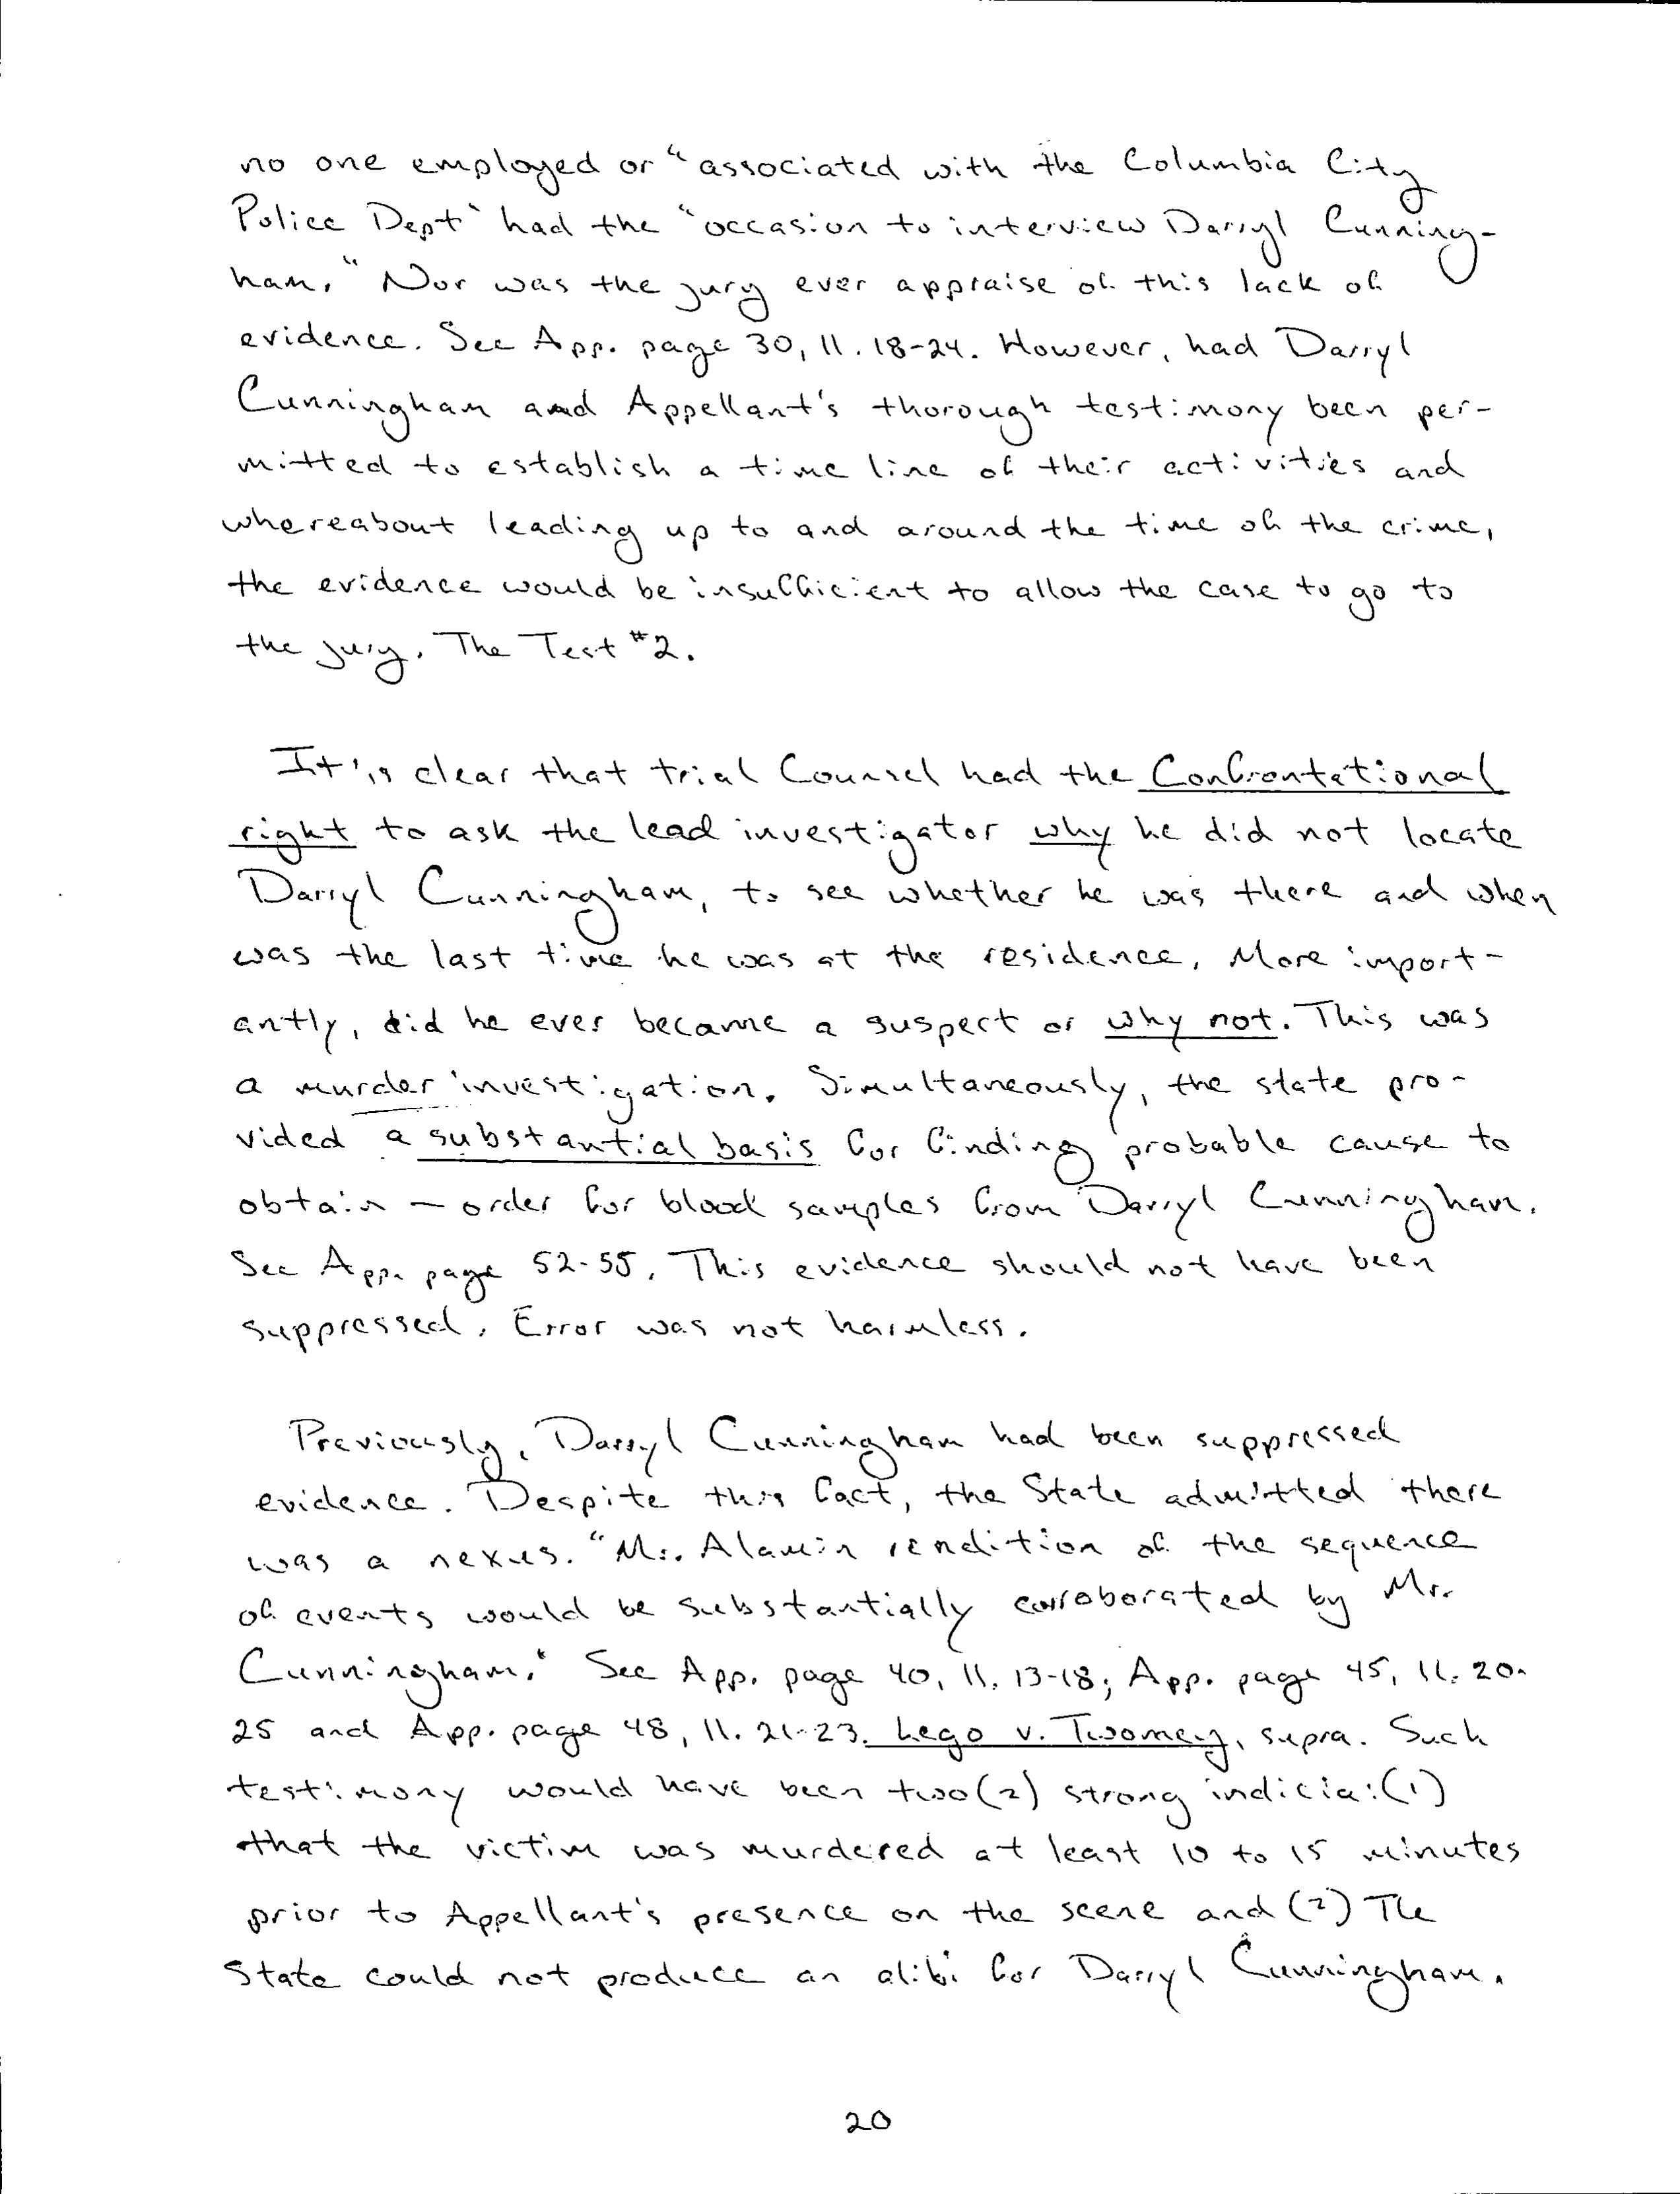 no one employed or "associated with the Columbia City
Police Dept" had the "occasion to interview Darryl Cunning-
ham." Nor was the jury ever appraise of this lack of
evidence. See App. page 30, ll. 18-24. However, had Darryl
Cunningham and Appellant's thorough testimony been per-
mitted to establish a time line of their activities and
whereabout leading up to and around the time of the crime,
the evidence would be insufficient to allow the case to go to
the jury. The Test #2.
It's clear that trial Counsel had the Confrontational
right to ask the lead investigator why he did not locate
Darryl Cunningham, to see whether he was there and when
was the last time he was at the residence. More import-
antly, did he ever became a suspect or why not. This was
a murder investigation. Simultaneously, the state pro-
vided a substantial basis for finding probable cause to
obtain — order for blood samples from Darryl Cunningham.
See App. page 52-55. This evidence should not have been
suppressed. Error was not harmless.
Previously, Darryl Cunningham had been suppressed
evidence. Despite this fact, the State admitted there
was a nexus. "Mr. Alamin rendition of the sequence
of events would be substantially corroborated by Mr.
Cunningham." See App. page 40, ll. 13-18; App. page 45, ll. 20-
25 and App. page 48, ll. 21-23. Lego v. Twomey, supra. Such
testimony would have been two (2) strong indicia: (1)
that the victim was murdered at least 10 to 15 minutes
prior to Appellant's presence on the scene and (2) The
State could not produce an alibi for Darryl Cunningham.
20